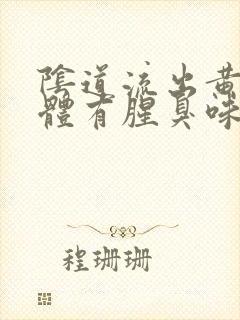 陰道流出黄
體有腥臭味
程珊珊